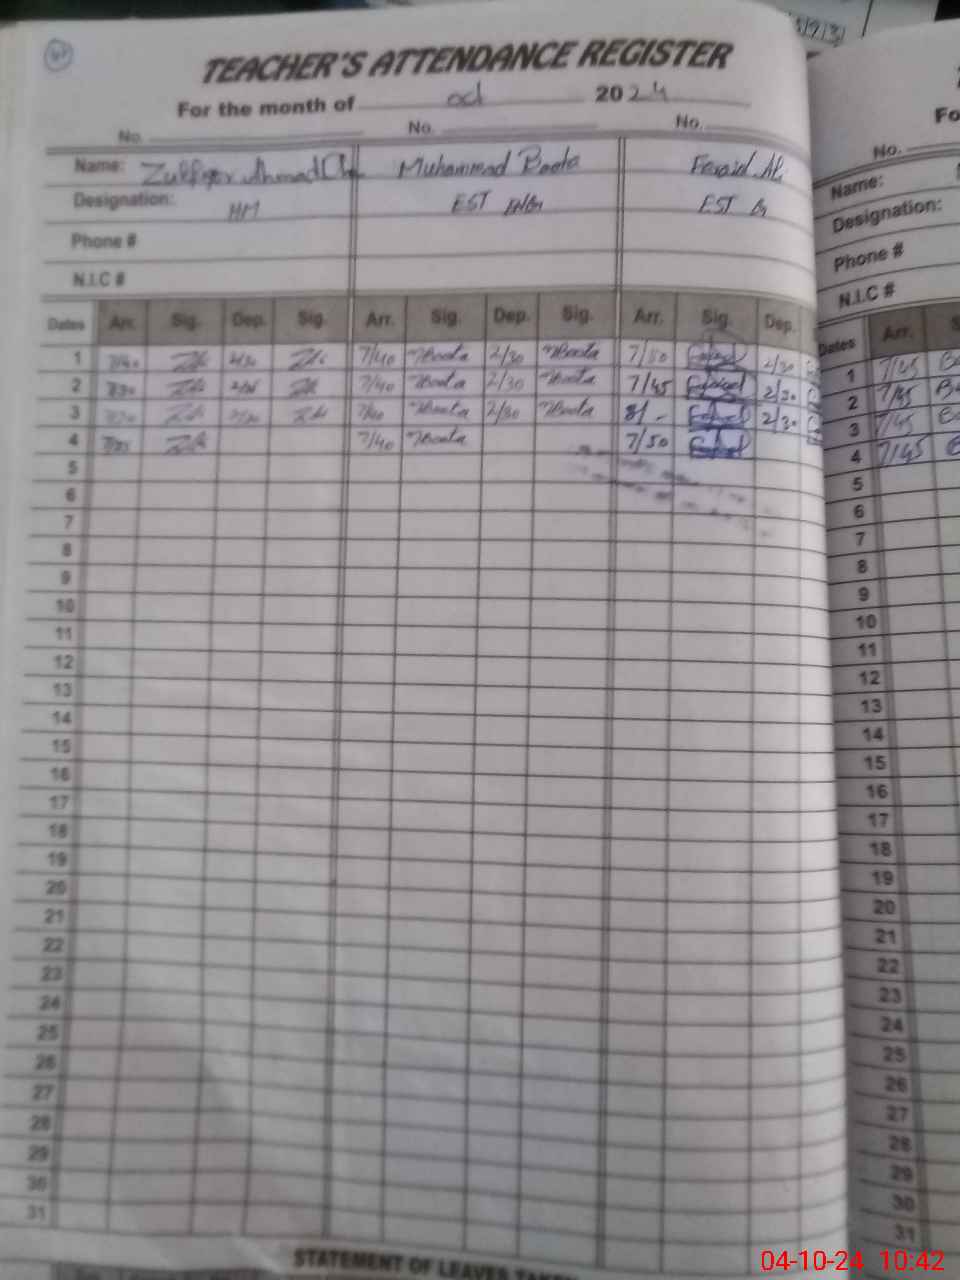 TEACHER'S ATTENDANCE REGISTER
For the month of oct 2024
No. No. No.
Name: Ahmad Muhammad Boota Ali
Designation: HM EST EST
Phone #
N.I.C #
Dates Arr. Sig. Dep. Sig. Arr. Sig. Dep. Sig. Arr. Sig. Dep.
1 7/40 2/30 7/40 MBoota 2/30 MBoota 7/50 2/30
2 7/30 7/40 MBoota 2/30 MBoota 7/45 2/30
3 7/40 MBoota 2/30 MBoota 8/- 2/30
4 7/40 MBoota 7/50
5
6
7
8
9
10
11
12
13
14
15
16
17
18
19
20
21
22
23
24
25
26
27
28
29
30
31
STATEMENT OF LEAVES TAKEN
Fo
No.
Name:
Designation:
Phone #
N.I.C #
Dates Arr. S
1 7/45
2 7/45
3 7/45
4 7/45
5
6
7
8
9
10
11
12
13
14
15
16
17
18
19
20
21
22
23
24
25
26
27
28
29
30
31
04-10-24 10:42